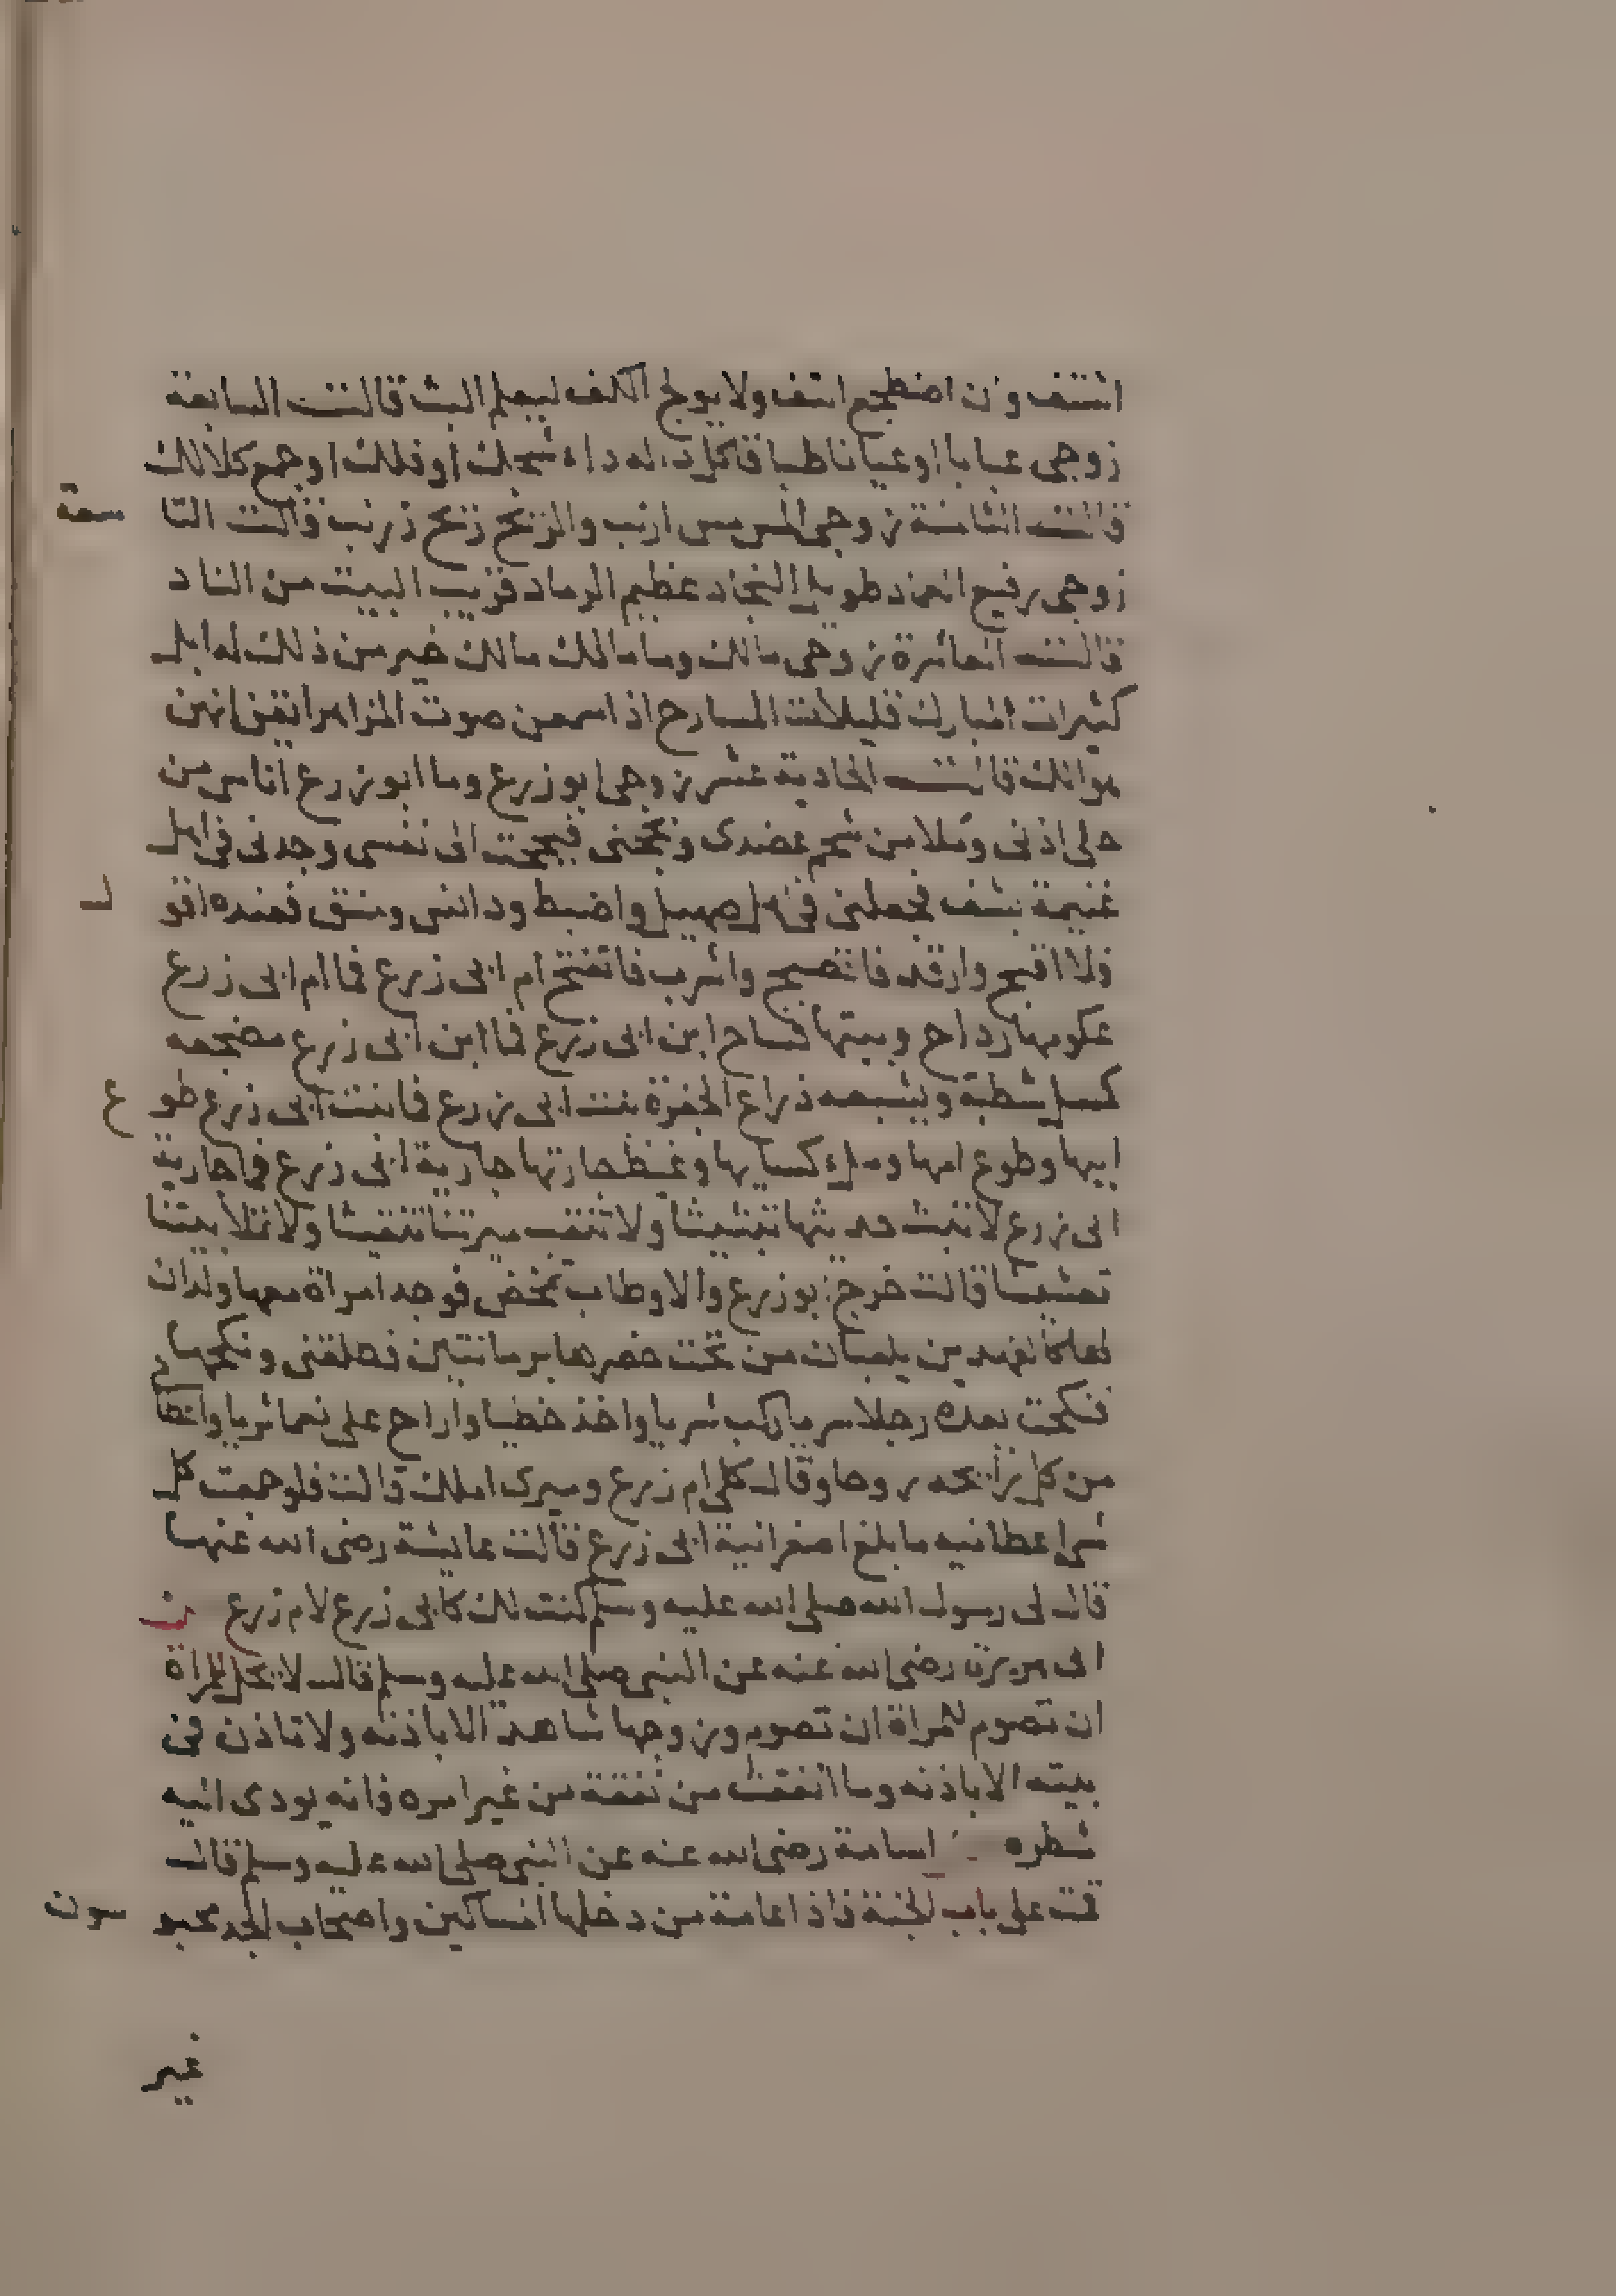 اشتف وان اضطجع التف ولا يولج الكف ليعلم البث قالت السابعة
زوجي غيايا او عياياء طباقا كل داء له داء شجك او فلك او جمع كلا لك
قالت الثامنة زوجي المس مس ارنب والريح ريح زرنب قالت التا
سعة
زوجي رفيع العماد طويل النجاد عظيم الرماد قريب البيت من الناد
قالت العاشرة زوجي مالك وما مالك مالك خير من ذلك له ابل
كثيرات المبارك قليلات المسارح اذا سمعن صوت المزاهر ايقن انهن
هوالك قالت الحادية عشر زوجي ابو زرع وما ابو زرع اناس من
حلي اذني وملا من شحم عضدي وبجحني فبجحت الى نفسي وجدني في اهل
غنيمة بشق فجعلني في اهل صهيل واطيط ودائس ومنق فعنده اقو
ل
فلا اقبح وارقد فاتصبح واشرب فاتفتح ام ابي زرع فما ام ابي زرع
عكومها رداح وبيتها فساح ابن ابي زرع فما ابن ابي زرع مضجعه
كمسل شطبة ويشبعه ذراع الجفرة بنت ابي زرع فما بنت ابي زرع طو
ع
ابيها وطوع امها وملء كسايها وغيظ جارتها جارية ابي زرع فما جارية
ابي زرع لا تبث حديثها تبثيثا ولا تنقث ميرتنا تنقيثا ولا تملا بيتنا
تعشيشا قالت خرج ابو زرع والاوطاب تمخض فوجد امراة معها ولدان
لها كالفهدين يلعبان من تحت خصرها برمانتين فطلقني ونكحها
فنكحت بعده رجلا سريا ركب شريا واخذ خطيا واراح علي نعما ثريا واعطا
من كل رائحة زوجا وقال كلي ام زرع وميري اهلك قالت فلو جمعت كل
شي اعطانيه ما بلغ اصغر انية ابي زرع قالت عايشة رضي الله عنها
قال لي رسول الله صلى الله عليه وسلم كنت لك كابي زرع لام زرع عن
ابي هريرة رضي الله عنه عن النبي صلى الله عليه وسلم قال لا يحل للمراة
ان تصوم للمراة ان تصوم وزوجها شاهد الا باذنه ولا تاذن في
بيته الا باذنه وما انفقت من نفقة من غير امره فانه يودى اليه
شطره اسامة رضي الله عنه عن النبي صلى الله عليه وسلم قال
قمت على باب الجنة فاذا عامة من دخلها المساكين واصحاب الجد محبو
سون
غير